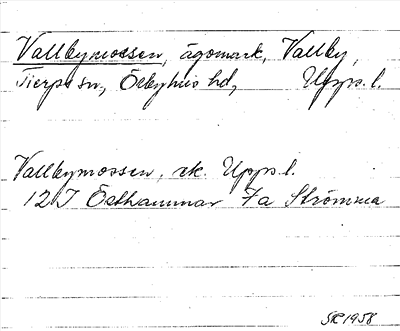 Vallbymossen, ägomark, Vallby,
Tierps sn, Örbyhus hd, Upps. l.
Vallbymossen, ek. Upps. l.
12 I Östhammar 7a Strömma
SR 1958